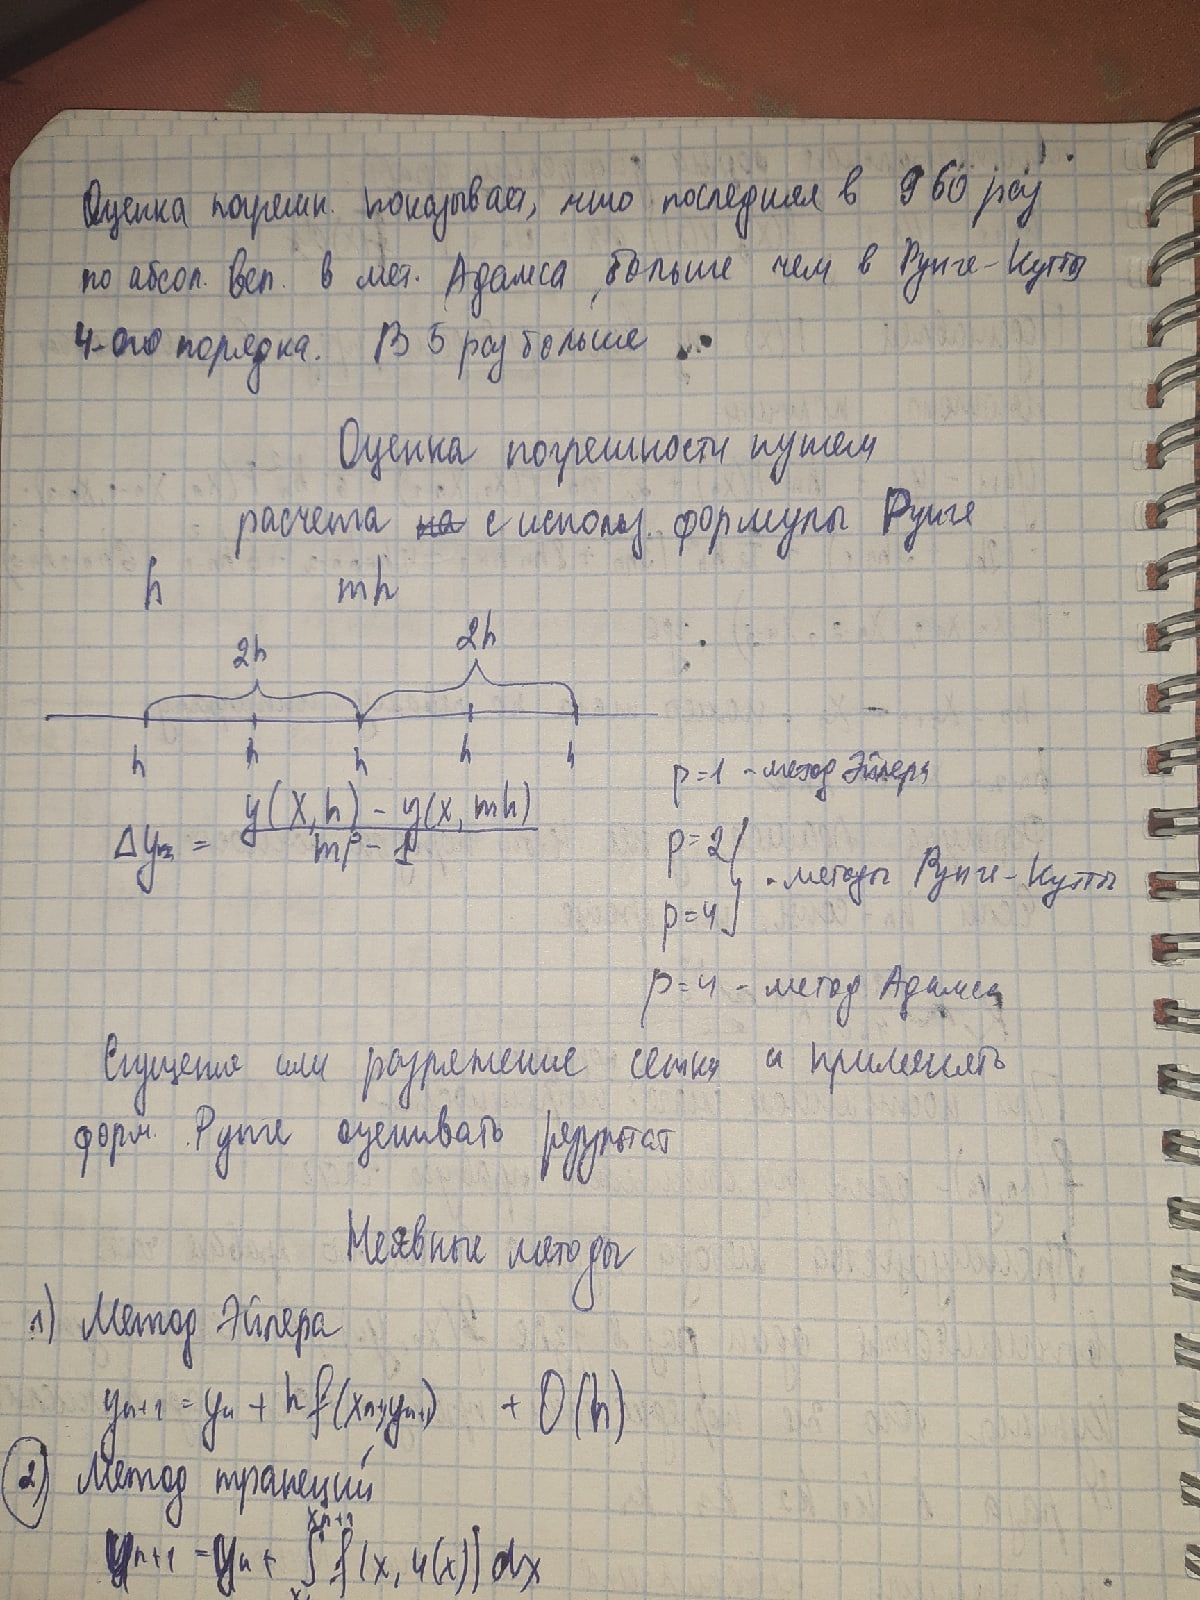 Оценка погрешн. показывает, что последняя в 960 раз
по абсол. вел. в мет. Адамса, больше чем в Рунге-Кутты
4-ого порядка. В 5 раз больше
Оценка погрешности путем
расчета на с использ. формулы Рунге
h mh
2h 2h
h h h h h
p=1 - метод Эйлера
Δy = y(x,h) - y(x,mh) / m^p - 1
p=2
p=4 } - методы Рунге-Кутты
p=4 - метод Адамса
Сгущения или разряжение сетки и применять
форм. Рунге оценивать результат
Неявные методы
1) Метод Эйлера
y_{n+1} = y_n + h f(x_{n+1}, y_{n+1}) + O(h)
2) Метод трапеций
y_{n+1} = y_n + ∫^{x_{n+1}} f(x, u(x)) dx